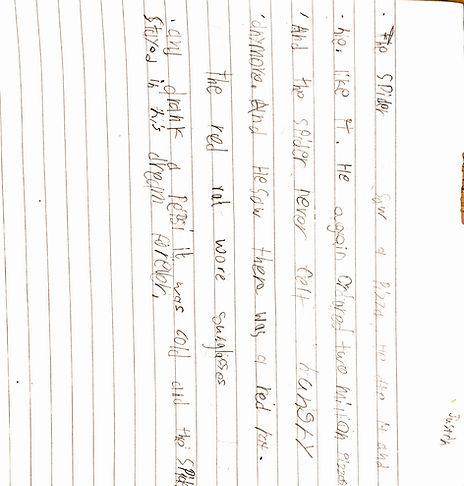 Justin
. the spider saw a pizza. He ate it and
. he. like it. He again ordred two million pizzas
. And the spider never felt hungry
. anymore. And He saw there was a red rat.
The red rat wore sunglases
. and drank a Pepsi it was cold and the spider
stayed in his dream forever.